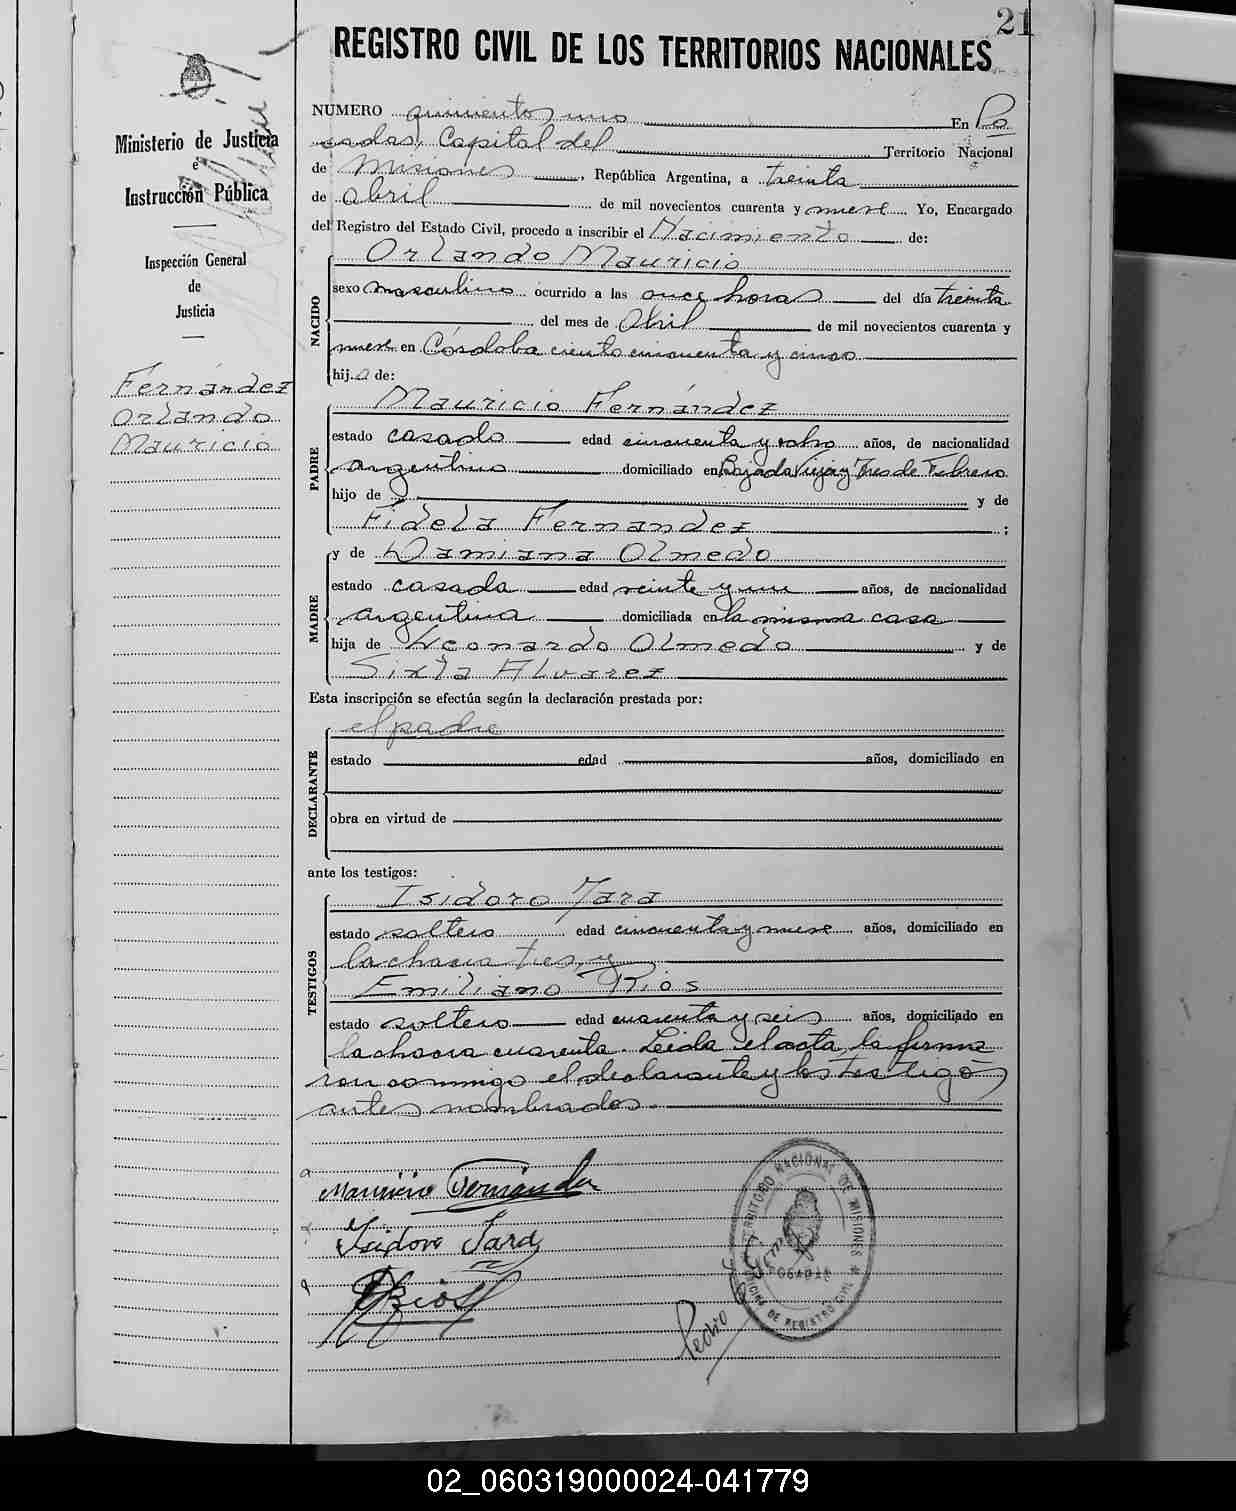 21
REGISTRO CIVIL DE LOS TERRITORIOS NACIONALES
Ministerio de Justicia
e
Instrucción Pública
Inspección General
de
Justicia
Fernández
Orlando
Mauricio
NUMERO quinientos uno En Po
sadas, Capital del Territorio Nacional
de Misiones, República Argentina, a treinta
de abril de mil novecientos cuarenta y nueve Yo, Encargado
del Registro del Estado Civil, procedo a inscribir el Nacimiento de:
NACIDO
Orlando Mauricio
sexo masculino ocurrido a las once horas del día treinta
del mes de Abril de mil novecientos cuarenta y
nueve en Córdoba ciento cincuenta y cinco
hij.o de:
PADRE
Mauricio Fernández
estado casado edad cincuenta y ocho años, de nacionalidad
argentino domiciliado en Bajada Vieja y Tres de Febrero
hijo de y de
Fidela Fernández ;
MADRE
y de Damiana Olmedo
estado casada edad veinte y un años, de nacionalidad
argentina domiciliada en la misma casa
hija de Leonardo Olmedo y de
Sixta Alvarez
Esta inscripción se efectúa según la declaración prestada por:
DECLARANTE
el padre
estado edad años, domiciliado en
obra en virtud de
ante los testigos:
TESTIGOS
Isidoro Jara
estado soltero edad cincuenta y nueve años, domiciliado en
la chacra tres, y
Emiliano Rios
estado soltero edad cuarenta y seis años, domiciliado en
la chacra cuarenta. Leida el acta, la firma
ron conmigo el declarante y los testigos
antes nombrados.
Mauricio Fernández
Isidoro Jara
ERios
Pedro
TERRITORIO NACIONAL DE MISIONES
POSADAS
OFICINA DE REGISTRO CIVIL
02_060319000024-041779